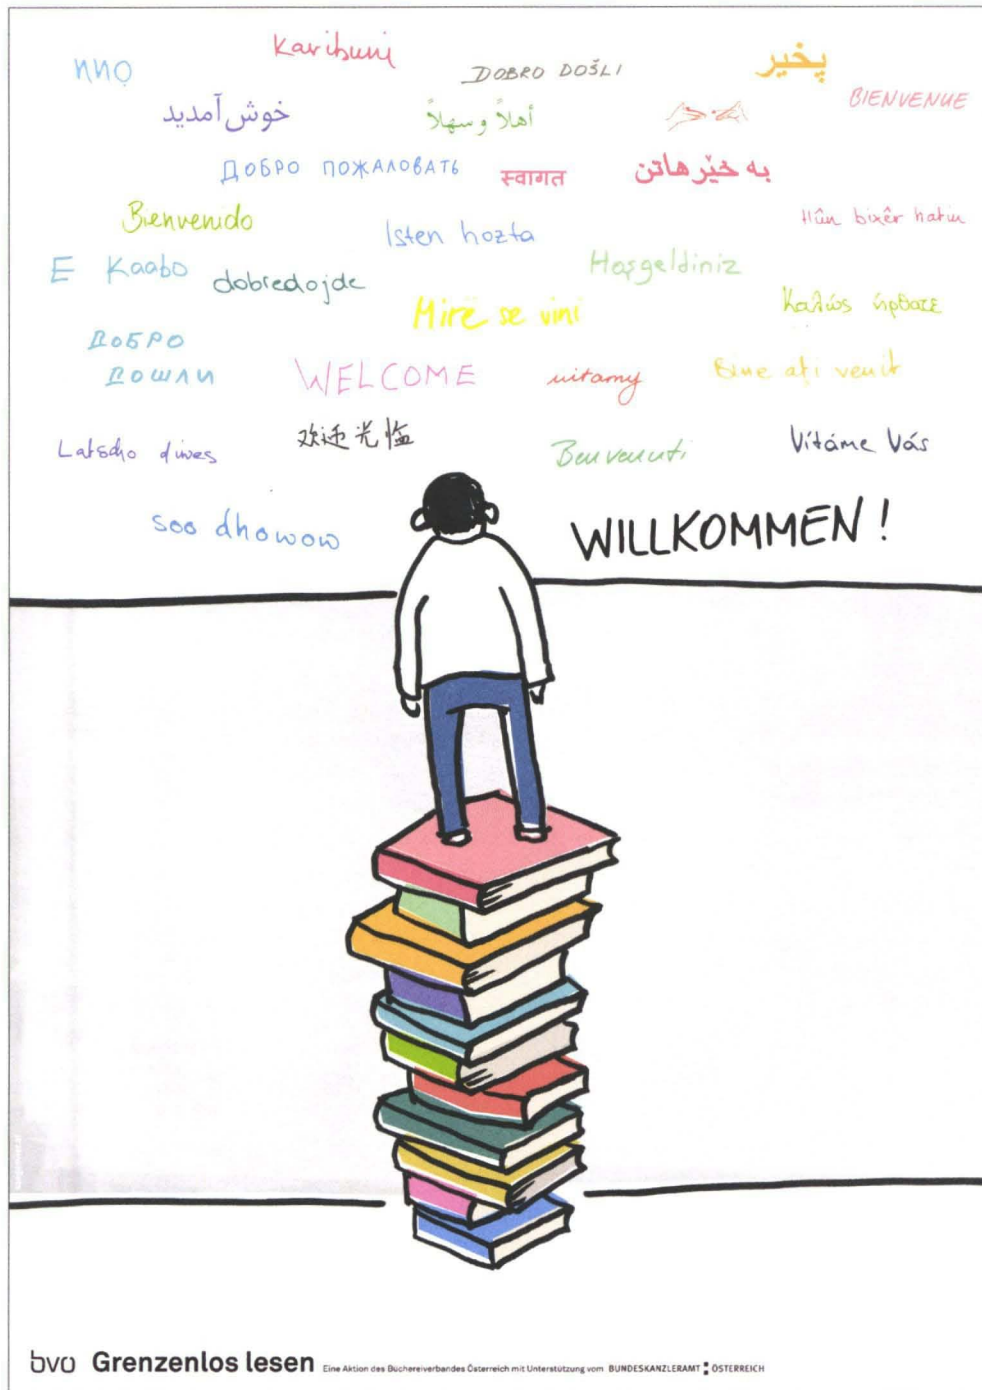 nno
Karibuni
DOBRO DOŠLI
پخير
BIENVENUE
خوش آمدید
أهلاً و سهلاً
ДОБРО ПОЖАЛОВАТЬ
स्वागत
به خێرهاتن
Bienvenido
Isten hozta
Hûn bixêr hatin
E Kaabo
dobredojde
Hoşgeldiniz
Mirë se vini
Καλώς ήρθατε
ДОБРО
ДОШЛИ
WELCOME
witamy
Bine aţi venit
Latscho diwes
欢迎光临
Benvenuti
Vítáme Vás
soo dhowow
WILLKOMMEN!
bvö Grenzenlos lesen Eine Aktion des Büchereiverbandes Österreich mit Unterstützung vom BUNDESKANZLERAMT ÖSTERREICH